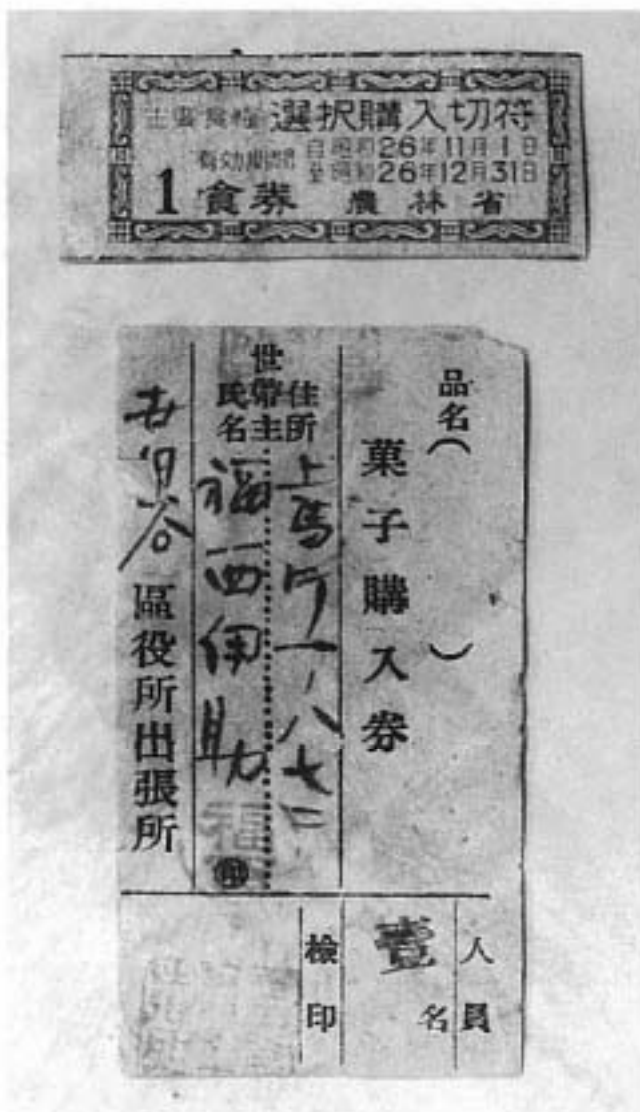 主要食糧選択購入切符
有効期間 自昭和26年11月1日
至昭和26年12月31日
1食券 農林省
品名( )
菓子購入券
住所 上馬町一ノ八七二
世帯主氏名 福西伊助
福
㊞
區役所出張所
人員
壹名
檢印